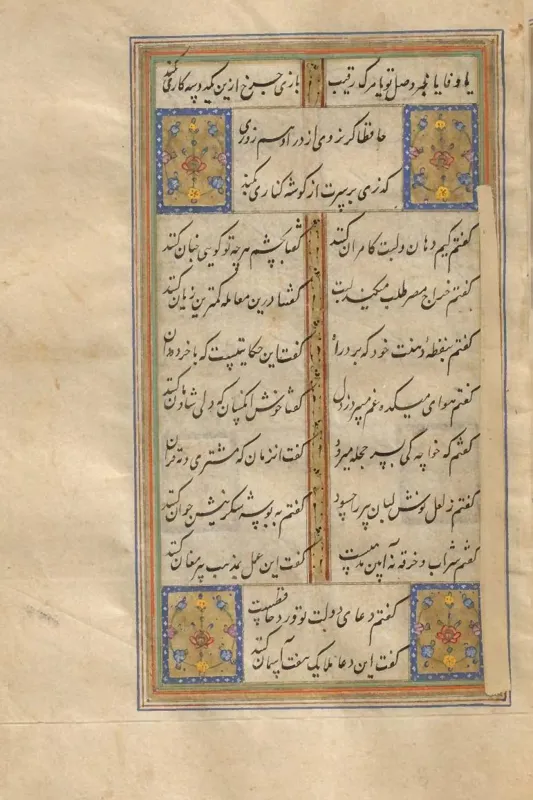 یا وفا یا خبر وصل تو یا مرگ رقیب بازی چرخ ازین یکدوسه کاری کند
حافظا گر نروی از در او هم روزی
گذری بر سرت از گوشه کناری کند
گفتم کیم دهان و لبت کامران کنند گفتا بچشم هرچه تو گویی چنان کنند
گفتم خراج مصر طلب میکند لبت گفتا درین معامله کمترین زیان کنند
گفتم بنقطه دهنت خود که برد راه گفت این حکایتیست که با خرده دان
گفتم هوای میکده غم میبرد ز دل گفتا خوش آنکسان که دلی شادمان کنند
گفتم که خواجه کی بسر حجله میرود گفت آنزمان که مشتری و مه قران
گفتم ز لعل نوش لبان پیر را چه سود گفتم به بوسه شکرینش جوان کنند
گفتم شراب و خرقه نه آیین مذهبست گفت این عمل بمذهب پیر مغان کنند
گفتم دعای دولت تو ورد حافظست
گفت این دعا ملایک هفت آسمان کنند